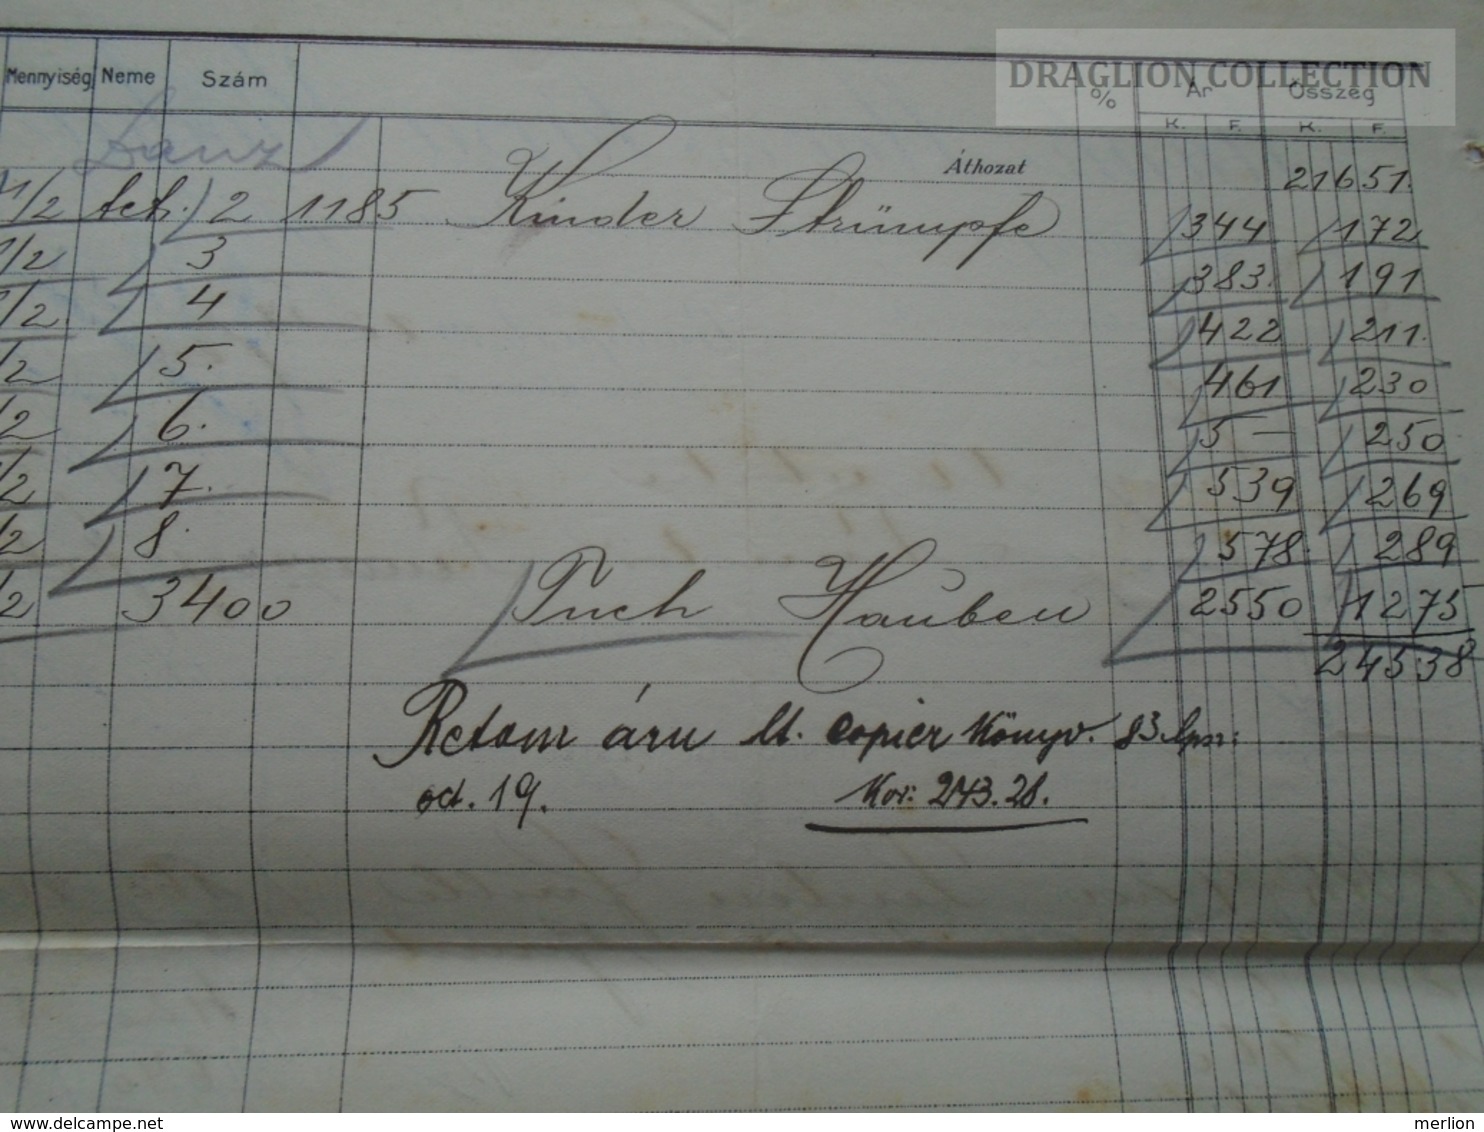 DRAGLION COLLECTION
Mennyiség Neme Szám % Ár Összeg
K. F. K. F.
Áthozat 21651.
1/2 2 1185 Kinder Strümpfe 344 172
1/2 3 383. 191
1/2 4 422 211.
1/2 5. 461 230
1/2 6. 5 — 250
1/2 7. 539 269
1/2 8. 578. 289
1/2 3400 Tuch Hauben 2550 1275
245.38
áru lt. copier Könyv. 83
oct. 19. Kor: 243.28.
delcampe.net
merlion